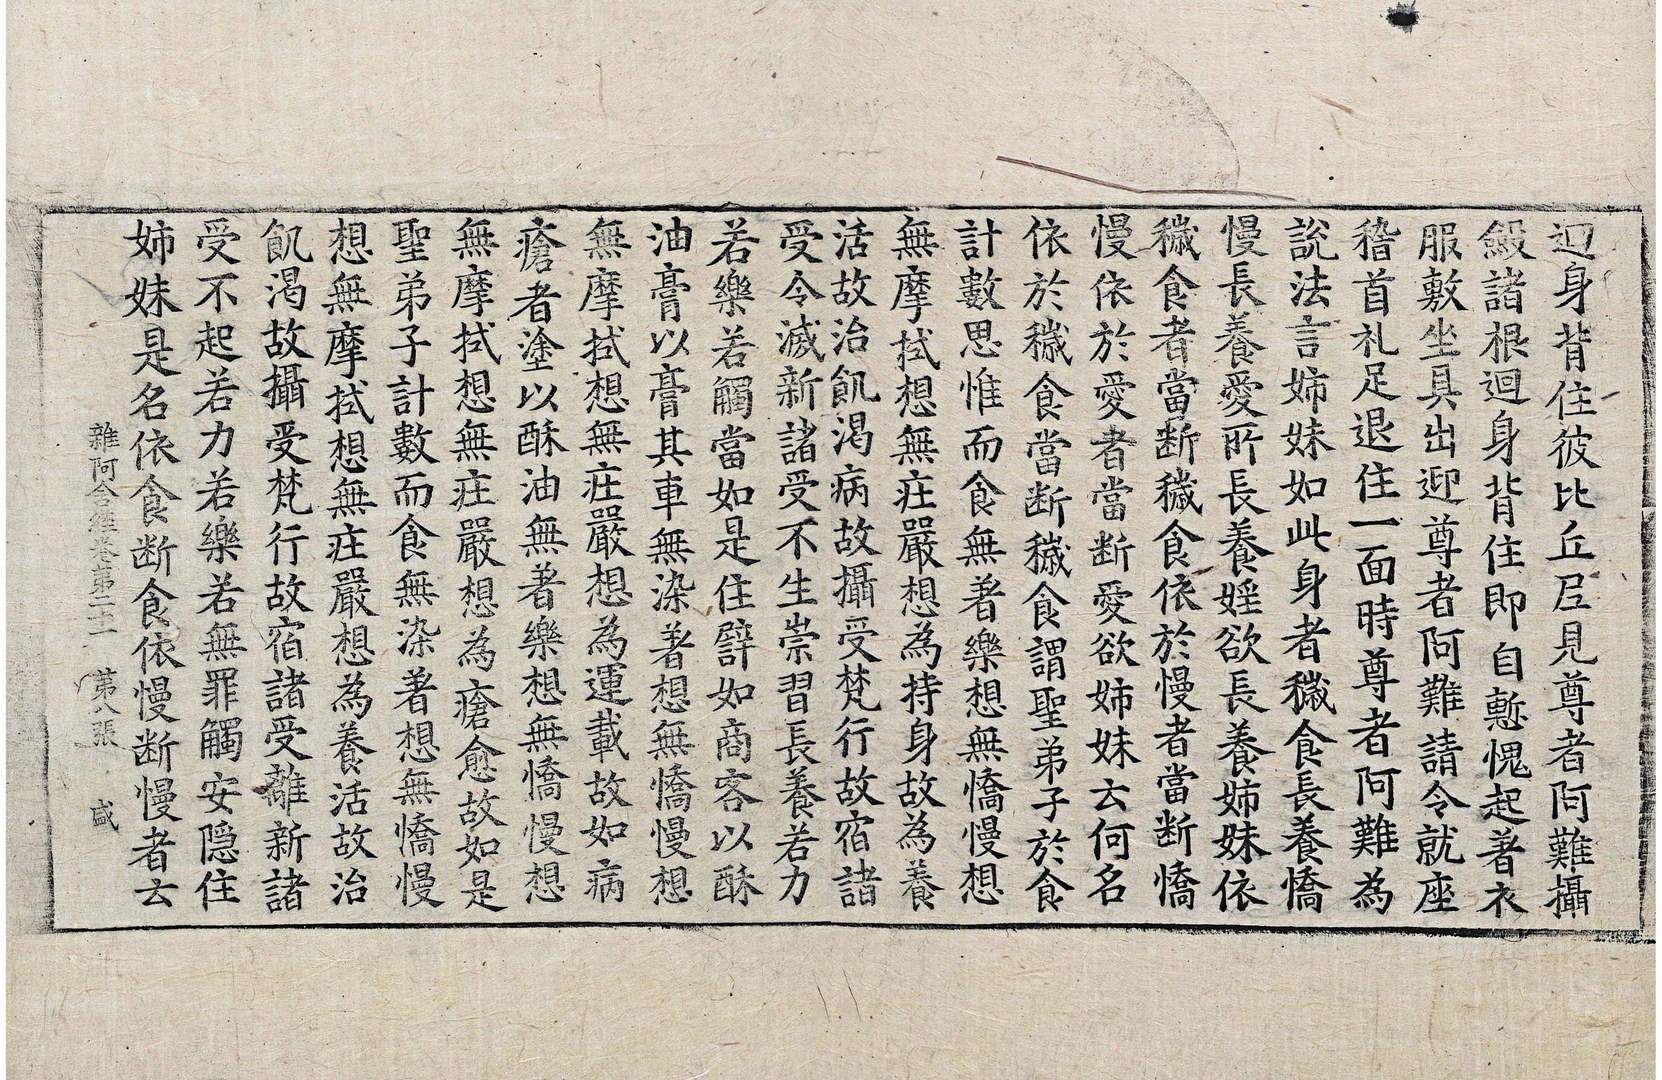 迴身背住彼比丘尼見尊者阿難攝
斂諸根迴身背住即自慙愧起著衣
服敷坐具出迎尊者阿難請令就座
稽首礼足退住一面時尊者阿難為
說法言姉妹如此身者穢食長養憍
慢長養愛所長養婬欲長養姉妹依
穢食者當断穢食依於慢者當断憍
慢依於愛者當断愛欲姉妹云何名
依於穢食當断穢食謂聖弟子於食
計數思惟而食無著樂想無憍慢想
無摩拭想無庄嚴想為持身故為養
活故治飢渴病故攝受梵行故宿諸
受令滅新諸受不生崇習長養若力
若樂若觸當如是住譬如商客以酥
油膏以膏其車無染著想無憍慢想
無摩拭想無庄嚴想為運載故如病
瘡者塗以酥油無著樂想無憍慢想
無摩拭想無庄嚴想為瘡愈故如是
聖弟子計數而食無染著想無憍慢
想無摩拭想無庄嚴想為養活故治
飢渴故攝受梵行故宿諸受離新諸
受不起若力若樂若無罪觸安隱住
姉妹是名依食断食依慢断慢者云
雜阿含經卷第二十一　第八張　盛